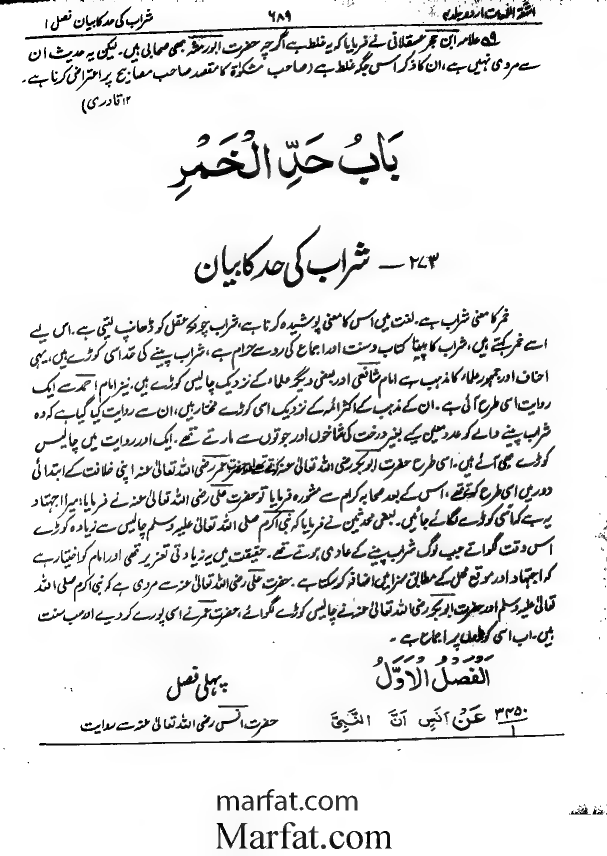 اشعۃ اللمعات اردو جلد پنجم ۶۸۹ شراب کی حد کا بیان فصل ۱
۵۹ علامہ ابن حجر عسقلانی نے فرمایا کہ یہ غلط ہے اگرچہ حضرت ابو رمثہ بھی صحابی ہیں۔ لیکن یہ حدیث ان
سے مروی نہیں ہے، ان کا ذکر اس جگہ غلط ہے (صاحب مشکوٰۃ کا مقصد صاحب مصابیح پر اعتراض کرنا ہے۔
۱۲ قادری)
بَابُ حَدِّ الْخَمْرِ
۲۷۳ – شراب کی حد کا بیان
خمر کا معنی شراب ہے۔ لغت میں اس کا معنی پوشیدہ کرنا ہے، شراب چونکہ عقل کو ڈھانپ لیتی ہے۔ اس لیے
اسے خمر کہتے ہیں، شراب کا پینا کتاب و سنت اور اجماع کی رو سے حرام ہے، شراب پینے کی حد اسی کوڑے ہیں، یہی
احناف اور جمہور علماء کا مذہب ہے امام شافعی اور بعض دیگر علماء کے نزدیک چالیس کوڑے ہیں۔ نیز امام احمد سے ایک
روایت اسی طرح آئی ہے۔ ان کے مذہب کے اکثر ائمہ کے نزدیک اسی کوڑے مختار ہیں، ان سے روایت کیا گیا ہے کہ وہ
شراب پینے والے کو عدد معین کے بغیر درخت کی شاخوں اور جوتوں سے مارتے تھے۔ ایک اور روایت میں چالیس
کوڑے بھی آئے ہیں۔ اسی طرح حضرت ابوبکر رضی اللہ تعالیٰ عنہ کرتے تھے اور حضرت عمر رضی اللہ تعالیٰ عنہ اپنی خلافت کے ابتدائی
دور میں اسی طرح کرتے تھے، اس کے بعد صحابہ کرام سے مشورہ فرمایا تو حضرت علی رضی اللہ تعالیٰ عنہ نے فرمایا: میرا اجتہاد
یہ ہے کہ اسی کوڑے لگائے جائیں۔ بعض محدثین نے فرمایا کہ نبی اکرم صلی اللہ تعالیٰ علیہ وسلم چالیس سے زیادہ کوڑے
اس وقت لگواتے جب لوگ شراب پینے کے عادی ہوتے تھے۔ حقیقت میں یہ زیادتی تعزیر تھی اور امام کو اختیار ہے
کہ اجتہاد اور موقع محل کے مطابق سزا میں اضافہ کر سکتا ہے۔ حضرت علی رضی اللہ تعالیٰ عنہ سے مروی ہے کہ نبی اکرم صلی اللہ
تعالیٰ علیہ وسلم اور حضرت ابوبکر رضی اللہ تعالیٰ عنہ نے چالیس کوڑے لگوائے، حضرت عمر نے اسی پورے کر دیے اور سب سنت
ہیں۔ اب اسی کوڑوں پر اجماع ہے۔
اَلْفَصْلُ الْاَوَّلُ پہلی فصل
۳۴۵۰/۱ عَنْ اَنَسٍ اَنَّ النَّبِيَّ حضرت انس رضی اللہ تعالیٰ عنہ سے روایت
marfat.com
Marfat.com